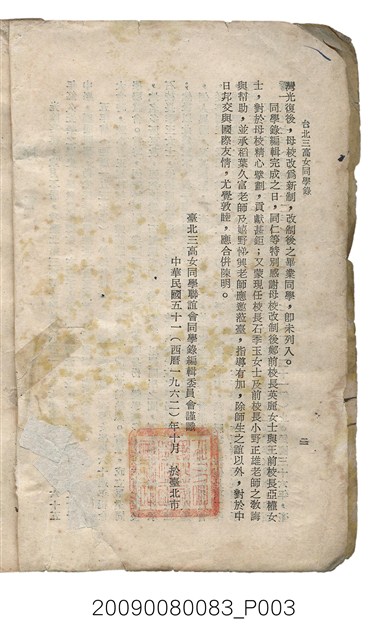 台北三高女同學錄
二
灣光復後，母校改為新制，改制後之畢業同學，卽未列入。
同學錄編輯完成之日，同仁等特別感謝母校改制後鄭前校長英麗女士與王前校長亞權女
士，對於母校精心擘劃，貢獻甚鉅；又蒙現任校長石季玉女士及前校長小野正雄老師之教誨
與幫助，並承稻葉久富老師及嬉野悌興老師應邀蒞臺，指導有加，除師生之誼以外，對於中
日邦交與國際友情，尤覺敦睦，應合併陳明。
臺北三高女同學聯誼會同學錄編輯委員會謹識
中華民國五十一（西曆一九六二）年十月　於臺北市
20090080083_P003